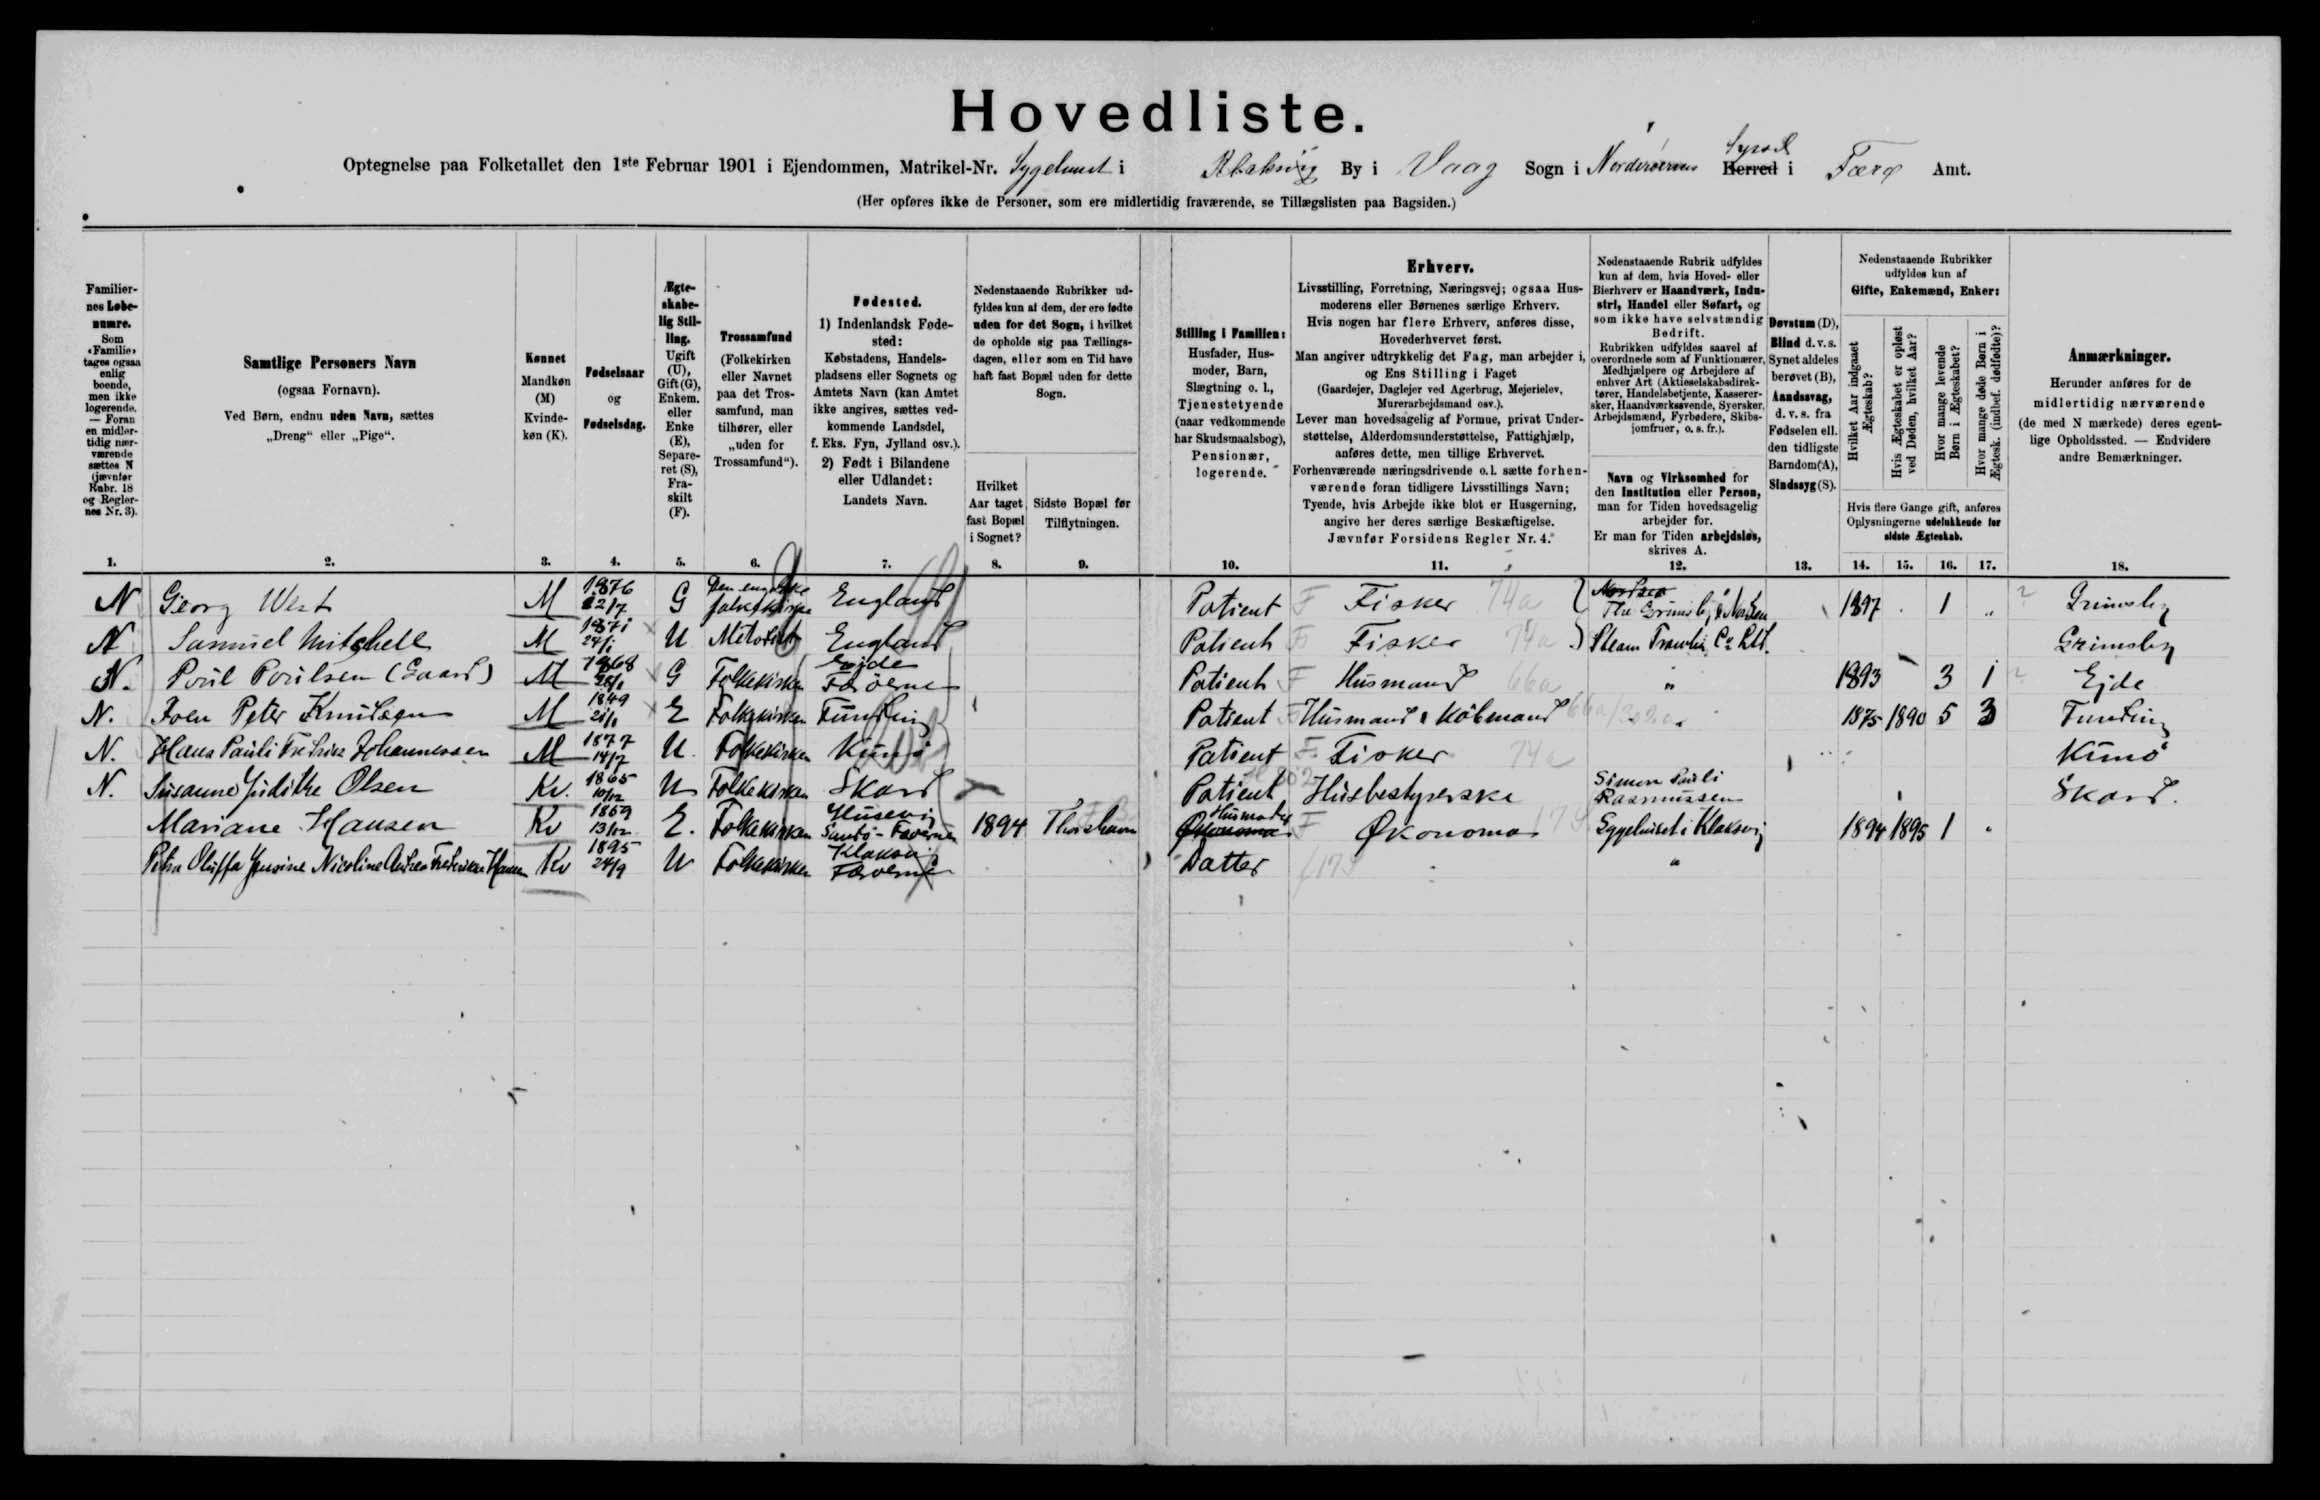 Hovedliste.
Optegnelse paa Folketallet den 1ste Februar 1901 i Ejendommen, Matrikel-Nr. Sygehuset i Klaksvig By i Vaag Sogn i Norderøernes Syssel Herred i Færø Amt.
(Her opføres ikke de Personer, som ere midlertidig fraværende, se Tillægslisten paa Bagsiden.)
Familiernes Løbenumre. Som «Familie» tages ogsaa enlig boende, men ikke logerende. — Foran en midlertidig nærværende sættes N (jævnfør Rubr. 18 og Reglernes Nr. 3).
Samtlige Personers Navn
(ogsaa Fornavn).
Ved Børn, endnu uden Navn, sættes
„Dreng“ eller „Pige“.
Kønnet
Mandkøn (M)
Kvindekøn (K).
Fødselsaar
og
Fødselsdag.
Ægteskabelig Stilling.
Ugift (U), Gift (G), Enkem. eller Enke (E), Separeret (S), Fraskilt (F).
Trossamfund
(Folkekirken eller Navnet paa det Trossamfund, man tilhører, eller „uden for Trossamfund“).
Fødested.
1) Indenlandsk Fødested:
Købstadens, Handelspladsens eller Sognets og Amtets Navn (kan Amtet ikke angives, sættes vedkommende Landsdel, f. Eks. Fyn, Jylland osv.).
2) Født i Bilandene eller Udlandet:
Landets Navn.
Nedenstaaende Rubrikker udfyldes kun af dem, der ere fødte uden for det Sogn, i hvilket de opholde sig paa Tællingsdagen, eller som en Tid have haft fast Bopæl uden for dette Sogn.
Hvilket Aar taget fast Bopæl i Sognet?
Sidste Bopæl før Tilflytningen.
Stilling i Familien:
Husfader, Husmoder, Barn, Slægtning o. l., Tjenestetyende (naar vedkommende har Skudsmaalsbog), Pensionær, logerende.
Erhverv.
Livsstilling, Forretning, Næringsvej; ogsaa Husmoderens eller Børnenes særlige Erhverv.
Hvis nogen har flere Erhverv, anføres disse, Hovederhvervet først.
Man angiver udtrykkelig det Fag, man arbejder i, og Ens Stilling i Faget
(Gaardejer, Daglejer ved Agerbrug, Mejerielev, Murerarbejdsmand osv.).
Lever man hovedsagelig af Formue, privat Understøttelse, Alderdomsunderstøttelse, Fattighjælp, anføres dette, men tillige Erhvervet.
Forhenværende næringsdrivende o. l. sætte forhenværende foran tidligere Livsstillings Navn; Tyende, hvis Arbejde ikke blot er Husgerning, angive her deres særlige Beskæftigelse.
Jævnfør Forsidens Regler Nr. 4.
Nedenstaaende Rubrik udfyldes kun af dem, hvis Hoved- eller Bierhverv er Haandværk, Industri, Handel eller Søfart, og som ikke have selvstændig Bedrift.
Rubrikken udfyldes saavel af overordnede som af Funktionærer, Medhjælpere og Arbejdere af enhver Art (Aktieselskabsdirektører, Handelsbetjente, Kasserersker, Haandværkssvende, Syersker, Arbejdsmænd, Fyrbødere, Skibsjomfruer, o. s. fr.).
Navn og Virksomhed for den Institution eller Person, man for Tiden hovedsagelig arbejder for.
Er man for Tiden arbejdsløs, skrives A.
Døvstum (D), Blind d. v. s. Synet aldeles berøvet (B), Aandssvag, d. v. s. fra Fødselen ell. den tidligste Barndom (A), Sindssyg (S).
Nedenstaaende Rubrikker udfyldes kun af
Gifte, Enkemænd, Enker:
Hvilket Aar indgaaet Ægteskab?
Hvis Ægteskabet er opløst ved Døden, hvilket Aar?
Hvor mange levende Børn i Ægteskabet?
Hvor mange døde Børn i Ægtesk. (indbef. dødfødte)?
Hvis flere Gange gift, anføres Oplysningerne udelukkende for sidste Ægteskab.
Anmærkninger.
Herunder anføres for de midlertidig nærværende (de med N mærkede) deres egentlige Opholdssted. — Endvidere andre Bemærkninger.
1. 2. 3. 4. 5. 6. 7. 8. 9. 10. 11. 12. 13. 14. 15. 16. 17. 18.
N Georg West M 1876 22/7 G Den engelske folkekirke England Patient F Fisker 74a The Grimsby & North Sea 1897 1 „ Grimsby
N Samuel Mitchell M 1871 24/1 U Metodist England Patient F Fisker 74a Steam Trawlin Co Ltd. Grimsby
N. Poul Poulsen (Gaard) M 1868 G Folkekirken Ejde Færöerne Patient F Husmand 66a „ 1893 3 1 Ejde
N. Joen Peter Knudsen M 1849 21/1 E Folkekirken Funding Patient F Husmand & Købmand 66a „ 1875 1890 5 3 Funding
N. Hans Pauli Fredrik Johannessen M 1877 14/7 U. Folkekirken Kunö Patient F. Fisker 74a Kunö
N. Susanne Judithe Olsen Kv. 1865 10/12 U Folkekirken Skard Patient Husbestyrerske Simon Pauli Rasmussen Skard.
Mariane Hansen Kv 1869 13/12 E. Folkekirken Husevig Sandö-Færöerne 1894 Thorshavn Husmoder Økonoma F Økonoma Sygehuset i Klaksvig 1894 1895 1 „
Petra Oluffa Jensine Nicoline Andrea Frederikke Hansen Kv 1895 24/9 U Folkekirken Klaksvig Færöerne Datter „